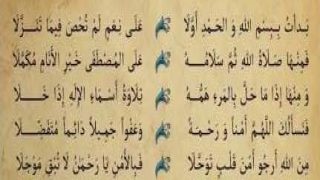 بَدَأْتُ بِبِسْمِ اللهِ وَ الْحَمْدِ أَوَّلَا عَلَى نِعَمٍ لَمْ تُحْصَ فِيمَا تَنَزَّلَا
فَمِنْهَا صَلَاةُ اللهِ ثُمَّ سَلَامُهُ عَلَى الْمُصْطَفَى خَيْرِ الْأَنَامِ مُكَمَّلَا
وَ مِنْهَا إِذَا مَا حَلَّ بِالْمَرْءِ هَمُّهُ تِلَاوَةُ أَسْمَاءِ الْإِلَهِ إِذَا خَلَا
فَنَسْأَلُكَ اللَّهُمَّ أَمْناً وَ رَحْمَةً وَعَفْواً جَمِيلاً دَائِماً مُتَفَضِّلَا
مِنَ اللهِ أَرْجُو أَمْنَ قَلْبٍ تَوَجَّلَا فَبِالْأَمْنِ يَا رَحْمَنُ لَا تُبْقِ مَوْجِلَا